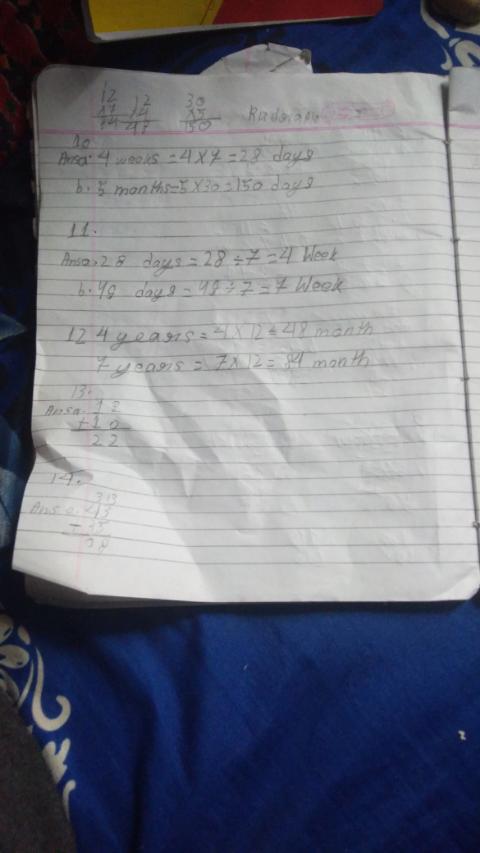 12 12 30
×7 ×4 ×5
84 48 150
10
Ans a. 4 weeks = 4 × 7 = 28 days
b. 5 months = 5 × 30 = 150 days
11.
Ans a. 28 days = 28 ÷ 7 = 4 Week
b. 49 days = 49 ÷ 7 = 7 Week
12 4 years = 4 × 12 = 48 month
7 years = 7 × 12 = 84 month
13.
Ans a. 12
+10
22
14.
Ans a.